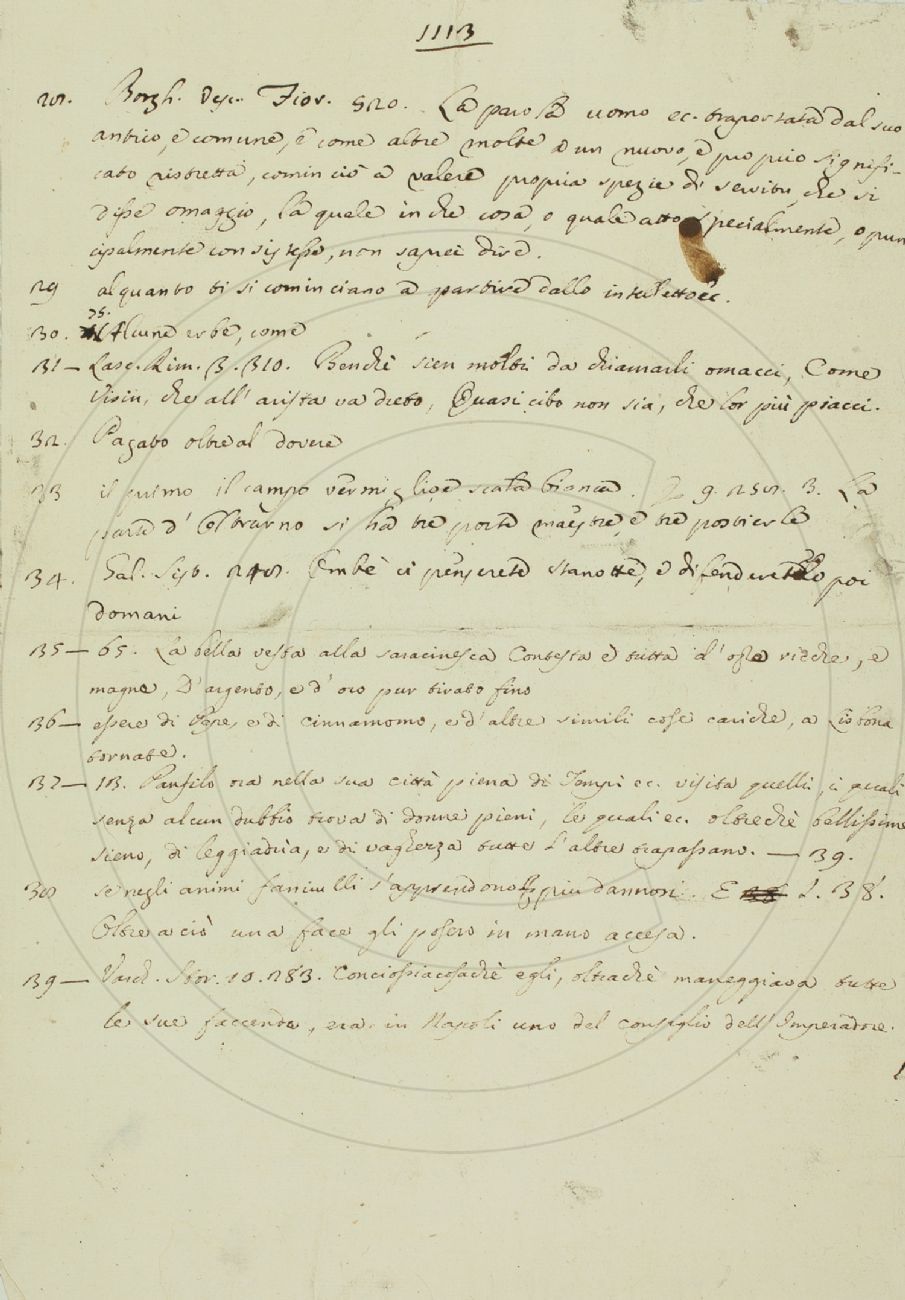 1113
28. Borgh. Vesc. Fior. 520. La parola uomo ec. trasportata dal suo
antico, e comune, e come altre molte a un nuovo, e proprio signifi-
cato ristretta, cominciò a valere propria spezie di servitu, che si
disse omaggio, la quale in che cosa, o quale atto specialmente, o prin
cipalmente consistesse, non saprei dire.
29 alquanto ti si cominciano a partire dallo intelletto ec.
30. 75. Alcune erbe, come
31 — Lasc. Rim. 3. 310. Benchè sien molti da chiamarli omacci, Come
visin, che all' arista va dreto, Quasi cibo non sia, che lor più piacci.
32. Pagato oltre al dovere
33 il primo il campo vermiglio e scala bianca. E g. 258. 3. La
parte d' Oltrarno si ha tre porte maestre, e tre postierle
34. Gal. Sist. 248. Embè ci penserete stanotte, e difenderetelo poi
domani
35 — 65. La bella vesta alla saracinesca Contesta è tutta d' opre ricche, e
magne, D'argento, e d' oro pur tirato fino
36 — essere di Pepe, e di cinnamomo, e d'altre simili cose cariche, a Lisbona
tornate.
37 — 13. Panfilo ora nella sua città piena di Tempi ec. visita quelli, i quali
senza alcun dubbio trova di donne pieni, le quali ec. oltrechè bellissime
sieno, di leggiadria, e di vaghezza tutte l'altre trapassano. — 39.
38 se negli animi fanciulli s'apprendono più dannosi. E L. 38.
Oltre a ciò una face gli posero in mano accesa.
39 — Varch. Stor. 10. 283. Conciossiacosachè egli, oltrachè maneggiava tutte
le sue faccende, era in Napoli uno del consiglio dell' Imperadore.